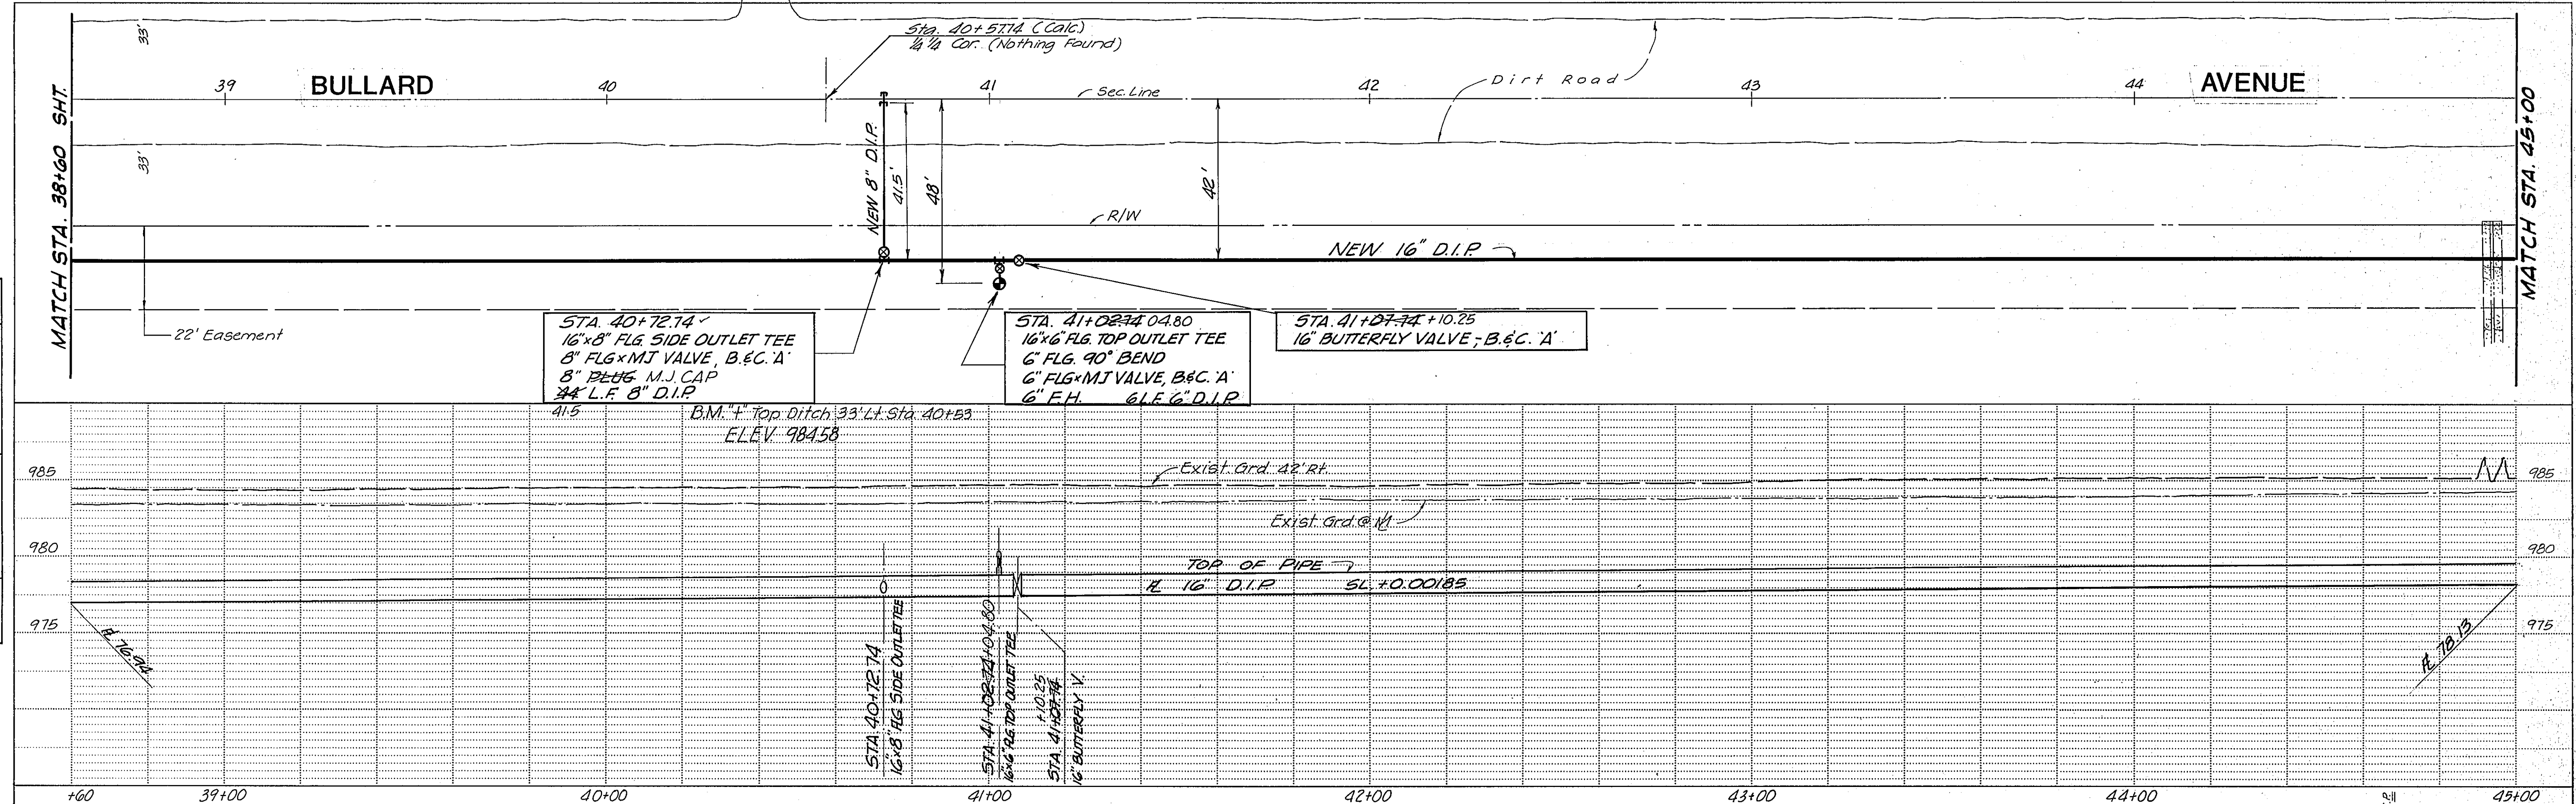 Sta. 40+57.74 (Calc.)
¼ ¼ Cor. (Nothing Found)
33'
39
BULLARD
40
41
Sec. Line
42
Dirt Road
43
44
AVENUE
MATCH STA. 38+60 SHT.
MATCH STA. 45+00
33'
NEW 8" D.I.P.
41.5'
48'
42'
R/W
NEW 16" D.I.P.
22' Easement
STA. 40+72.74
16"x8" FLG. SIDE OUTLET TEE
8" FLG×MJ VALVE, B.&C. 'A'
8" PLUG M.J. CAP
44 L.F. 8" D.I.P.
41.5
STA. 41+02.74 04.80
16"x6" FLG. TOP OUTLET TEE
6" FLG. 90° BEND
6" FLG×MJ VALVE, B&C. 'A'
6" F.H. 6 L.F. 6" D.I.P.
STA. 41+07.74 +10.25
16" BUTTERFLY VALVE, B.&C. 'A'
B.M. "+" Top Ditch 33' Lt. Sta. 40+53
ELEV. 984.58
985
Exist. Grd. 42' Rt.
985
Exist. Grd. @
980
980
TOP OF PIPE
16" D.I.P. SL. +0.00185
975
975
76.94
78.13
STA. 40+72.74
16"x8" FLG SIDE OUTLET TEE
STA. 41+02.74+04.80
16x6" FLG. TOP OUTLET TEE
+10.25
STA. 41+07.74
16" BUTTERFLY V.
+60
39+00
40+00
41+00
42+00
43+00
44+00
45+00